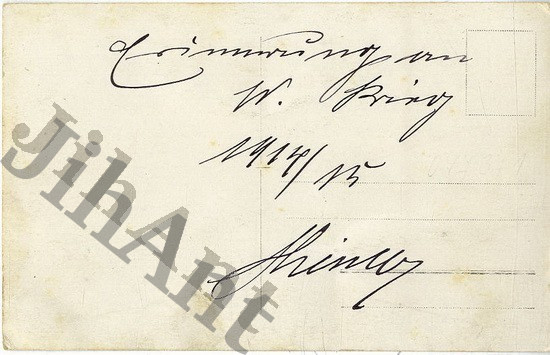 Erinnerung an
W. Krieg
1914/15
JihAnt